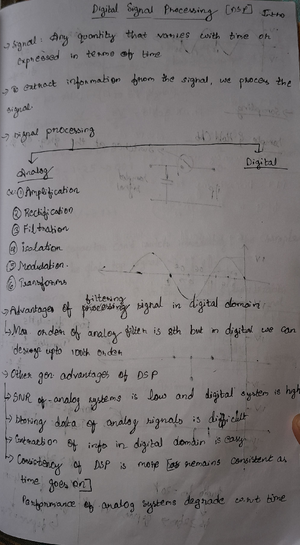 Digital Signal Processing [DSP] Intro
→ Signal: Any quantity that varies with time or
expressed in terms of time
→ To extract information from the signal, we process the
signal.
→ Signal processing
Analog Digital
① Amplification
② Rectification
③ Filtration
④ Isolation
⑤ Modulation.
⑥ Transforms
filtering
→ Advantages of processing signal in digital domain
↳ Max order of analog filter is 8th but in digital we can
design upto 100th order
→ Other gen advantages of DSP
↳ SNR of analog systems is low and digital system is high
↳ Storing data of analog signals is difficult
↳ Extraction of info in digital domain is easy.
↳ Consistency of DSP is more [as remains consistent as
time goes on]
Performance of analog systems degrade w.r.t time